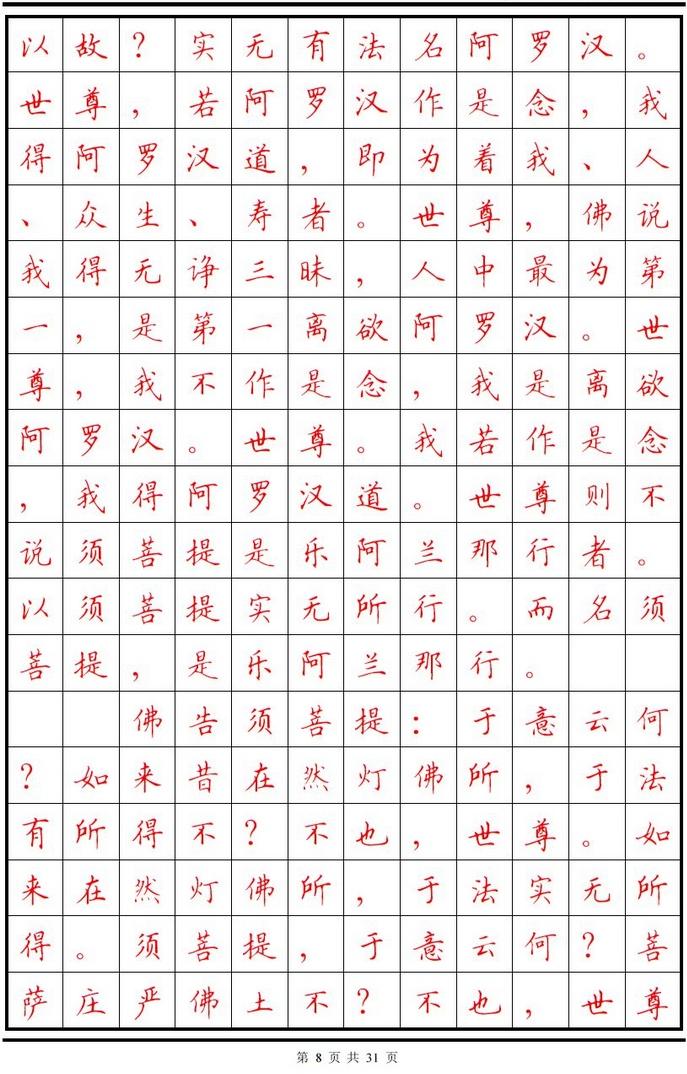 以故？实无有法名阿罗汉。
世尊，若阿罗汉作是念，我
得阿罗汉道，即为着我、人
、众生、寿者。世尊，佛说
我得无诤三昧，人中最为第
一，是第一离欲阿罗汉。世
尊，我不作是念，我是离欲
阿罗汉。世尊。我若作是念
，我得阿罗汉道。世尊则不
说须菩提是乐阿兰那行者。
以须菩提实无所行。而名须
菩提，是乐阿兰那行。
佛告须菩提：于意云何
？如来昔在然灯佛所，于法
有所得不？不也，世尊。如
来在然灯佛所，于法实无所
得。须菩提，于意云何？菩
萨庄严佛土不？不也，世尊
第 8 页 共 31 页